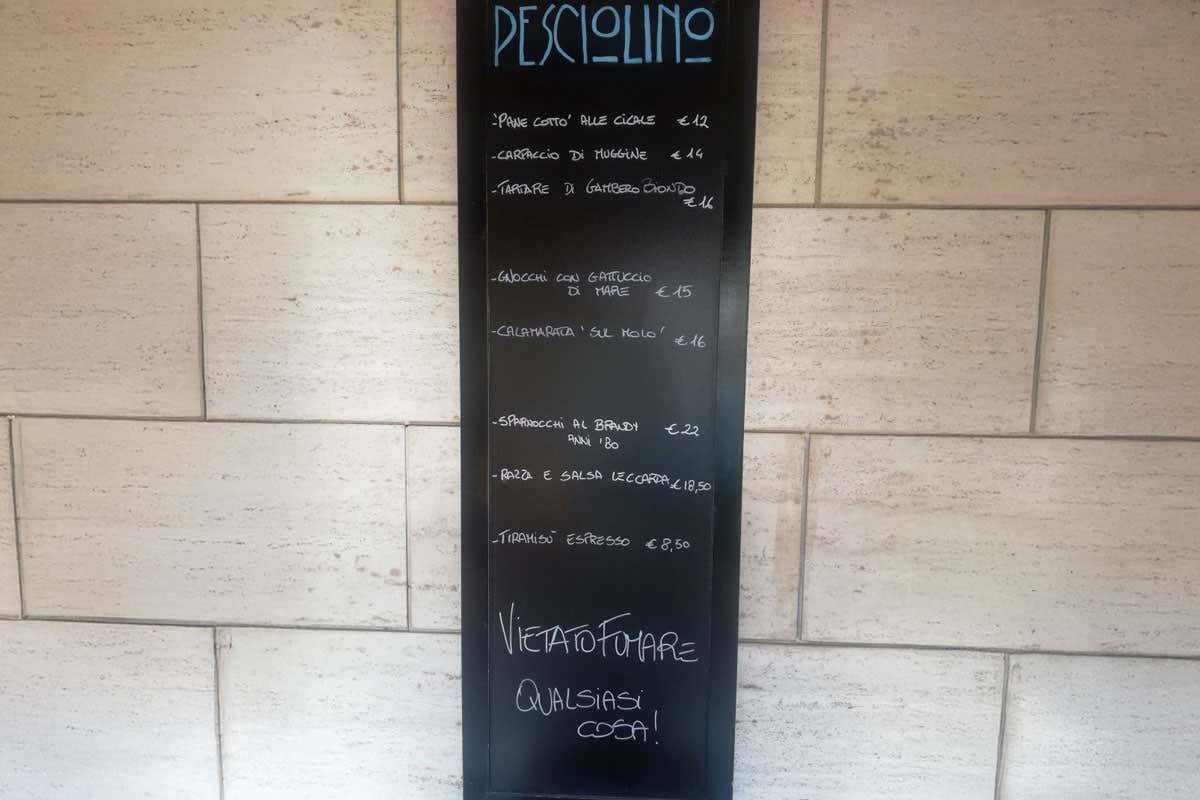 PESCIOLINO
-PANE COTTO' ALLE CICALE €12
-CARPACCIO DI MUGGINE €14
-TARTARE DI GAMBERO BIONDO
€16
-GNOCCHI CON GATTUCCIO
DI MARE €15
-CALAMARATA 'SUL MOLO'
€16
-SPARNOCCHI AL BRANDY €22
ANNI '80
-RAZZA E SALSA LECCARDA €18,50
-TIRAMISÙ ESPRESSO €8,50
VIETATO FUMARE
QUALSIASI
COSA!